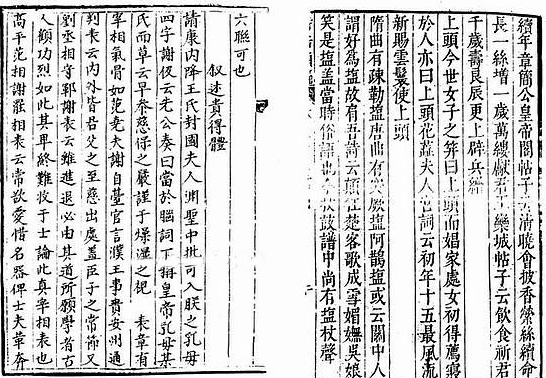 續年章簡公皇帝閣帖子云清曉會披香縈絲續命
長一絲增一歲萬縷獻君王欒城帖子云飲食祈君
千歲壽良辰更上辟兵繒
上頭今世女子之笄曰上頭而娼家處女初得薦寢
於人亦曰上頭花蕊夫人宮詞云初年十五最風流
新賜雲鬟使上頭
隋曲有疎勒塩唐曲有突厥塩阿鵲塩或云關中人
謂好為塩故有吾詩云顛狂楚客歌成雪媚嫵吳娘
笑是塩盖當時俗語也今杖鼓譜中尚有塩杖聲
六聯可也
叙述貴得體
靖康内降王氏封國夫人淵聖中批可入朕之乳母
四字謝伋云先公奏曰當於腦詞下稱皇帝乳母某
氏而草云早奉慈保之嚴謹于燥濕之視 表章有
宰相氣骨如范堯夫謝自臺官言濮王事責安州通
判表云内外皆君父之至慈出處蓋臣子之常節又
劉丞相謝表云雖進退必由其道所願學者古
人顧功烈如此其卑終難收于士論此真宰相表也
高平范相謝罷相表云常欲愛惜名器俾士夫奔